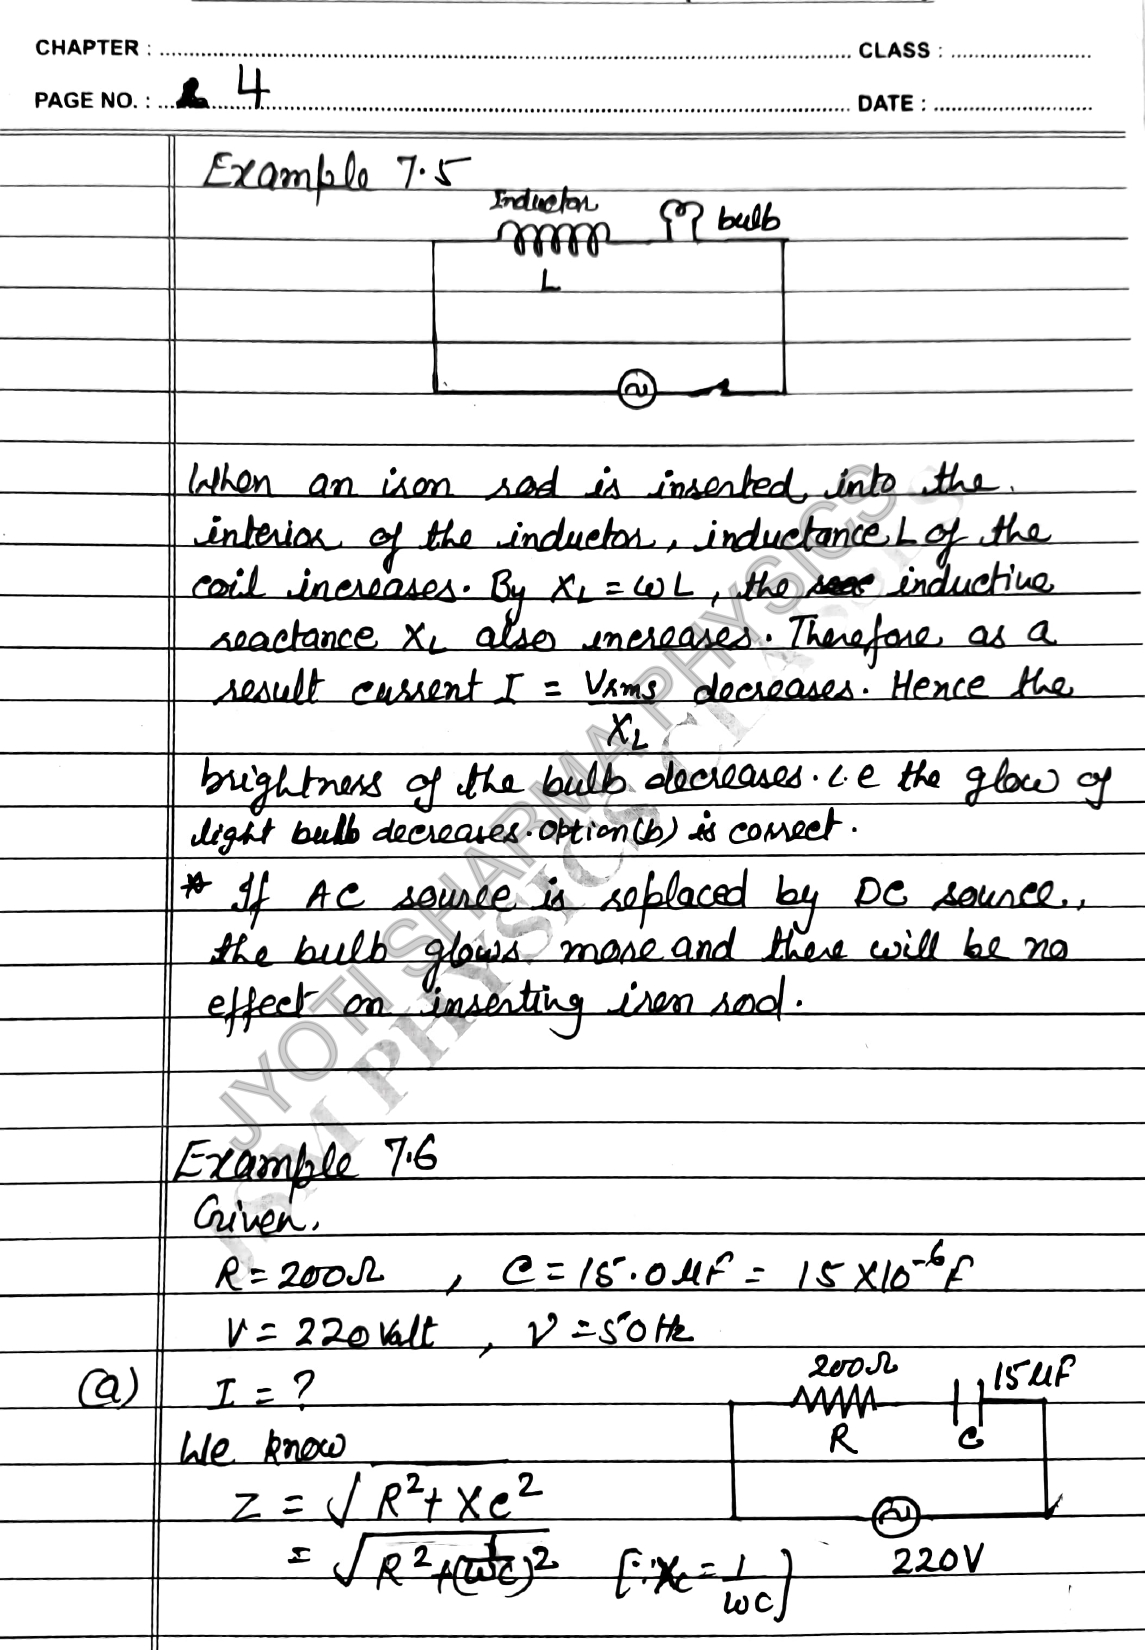 CHAPTER : CLASS :
PAGE NO. : 4 DATE :
Example 7.5
Inductor
bulb
L
When an iron rod is inserted into the
interior of the inductor, inductance L of the
coil increases. By XL = ωL, the inductive
reactance XL also increases. Therefore as a
result current I = Vrms/XL decreases. Hence the
brightness of the bulb decreases. i.e the glow of
light bulb decreases. Option (b) is correct.
* If AC source is replaced by DC source,
the bulb glows more and there will be no
effect on inserting iron rod.
JYOTI SHARMA PHYSICS
JSM PHYSICS CLASSES
Example 7.6
Given,
R = 200Ω , C = 15.0 μF = 15 X10⁻⁶F
V = 220 Volt , ν = 50 Hz
(a) I = ?
200Ω
15 μF
R
C
220V
We know
Z = √R² + Xc²
= √R² + (1/ωC)² [∵ Xc = 1/ωC]